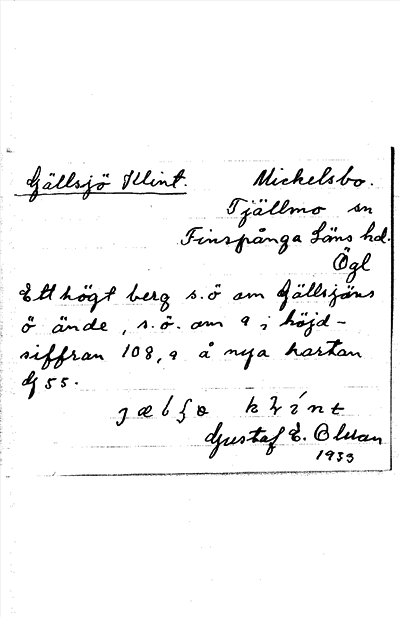 Gällsjö Klint. Mickelsbo.
Tjällmo sn
Finspånga Läns hd.
Ögl
Ett högt berg s.ö om Gällsjöns
ö ände, s.ö. om 9 i höjd-
siffran 108,9 å nya kartan
G 55.
Gustaf E. Olsson
1933